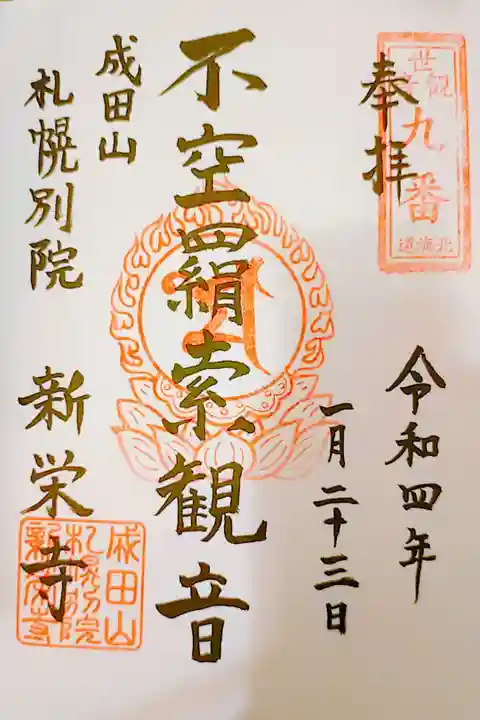 奉拝
令和四年
一月二十三日
不空羂索観音
成田山
札幌別院
新栄寺
九番
北海道
成田山
札幌別院
新栄寺